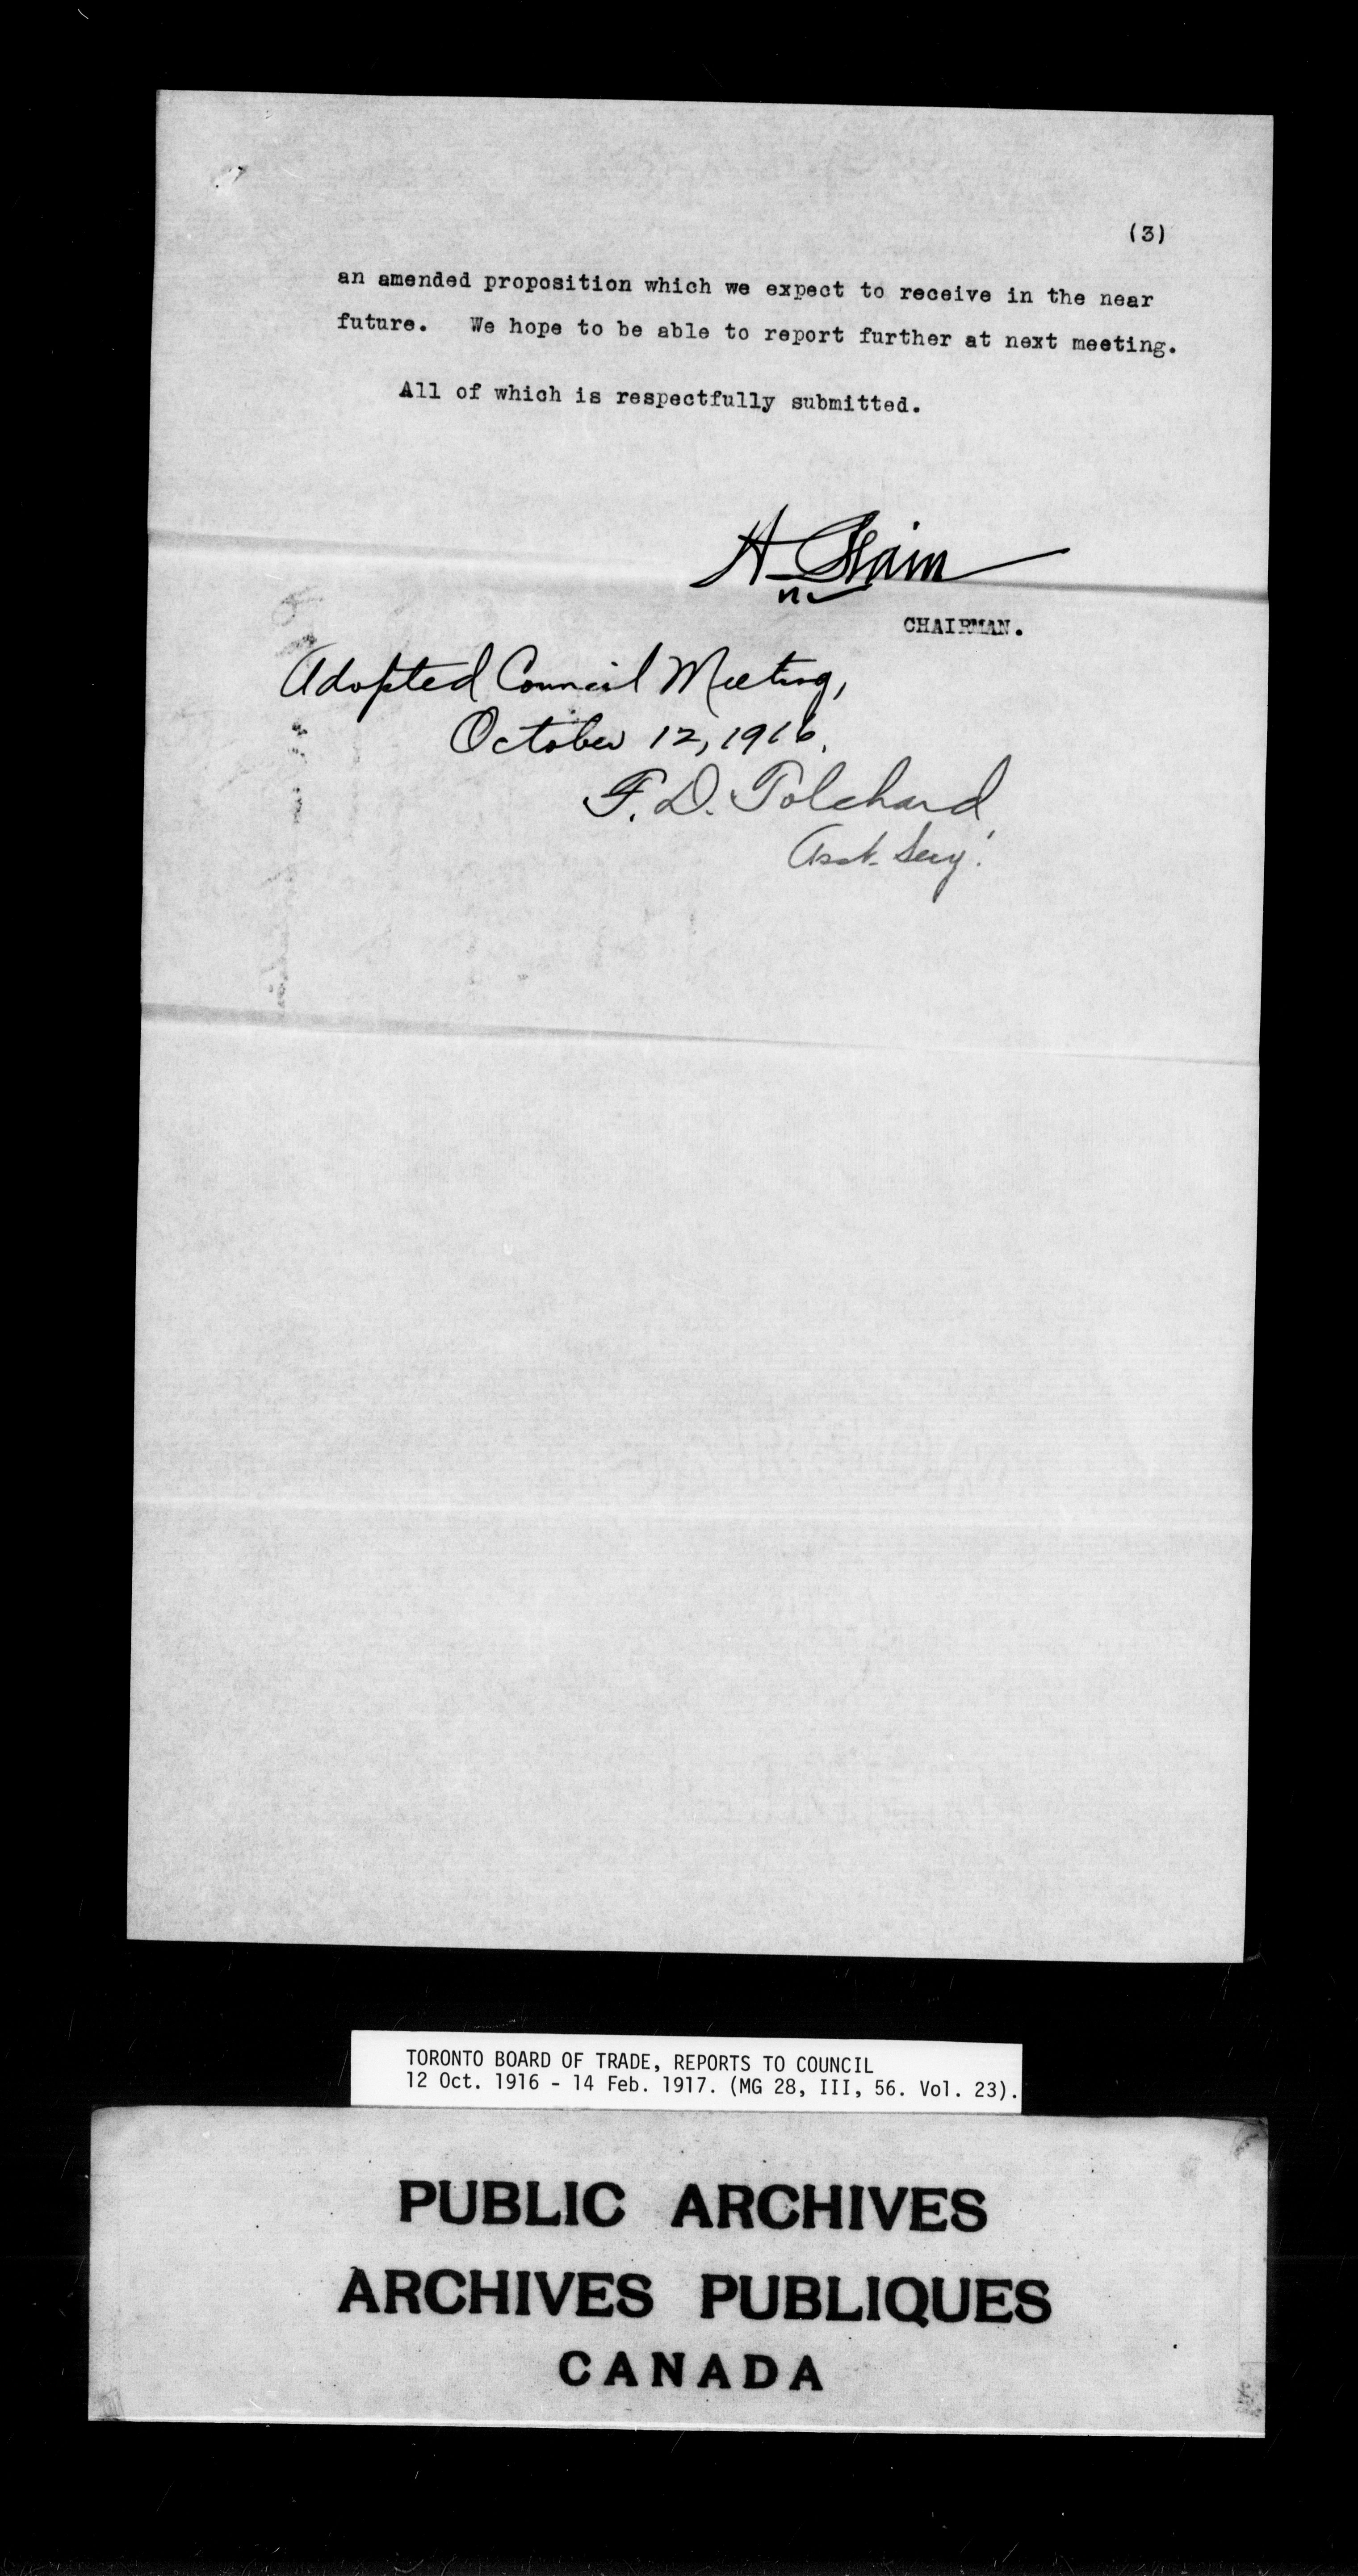 (3)
an amended proposition which we expect to receive in the near
future. We hope to be able to report further at next meeting.
All of which is respectfully submitted.
CHAIRMAN.
Adopted Council Meeting,
October 12, 1916.
F. D. Tolchard
Asst. Secy.
TORONTO BOARD OF TRADE, REPORTS TO COUNCIL
12 Oct. 1916 - 14 Feb. 1917. (MG 28, III, 56. Vol. 23).
PUBLIC ARCHIVES
ARCHIVES PUBLIQUES
CANADA